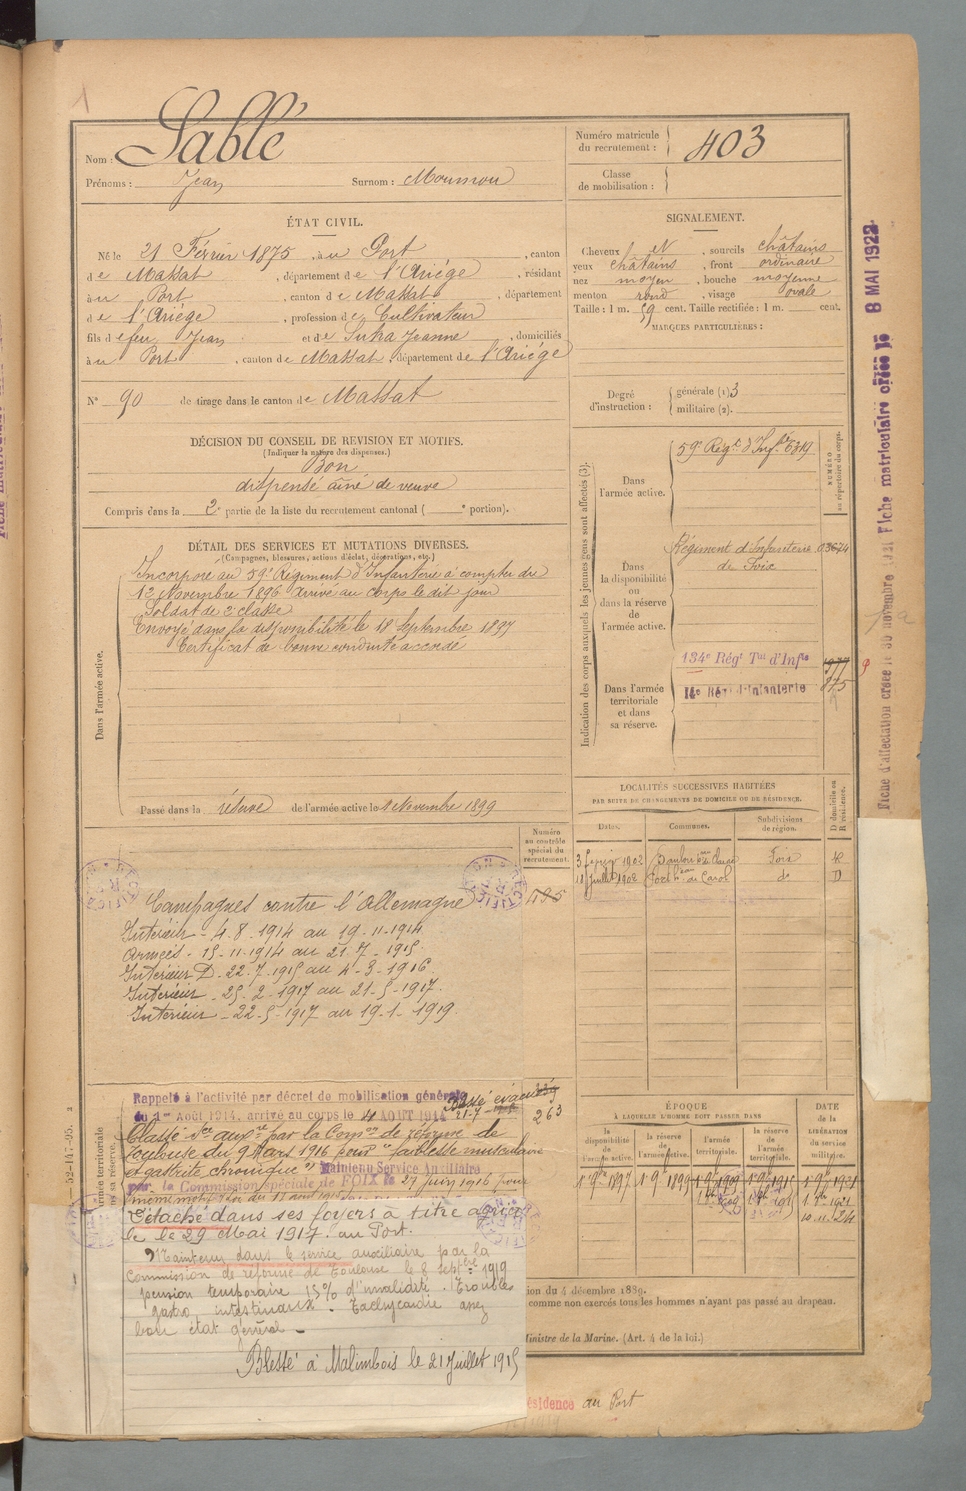 1
Nom : Sablé
Prénoms : Jean Surnom : Moumou
Numéro matricule du recrutement : 403
Classe de mobilisation :
ÉTAT CIVIL.
Né le 21 Février 1875, au Port, canton
de Massat, département de l'Ariége, résidant
au Port, canton de Massat, département
de l'Ariége, profession de Cultivateur
fils de feu Jean et de Jeanne, domiciliés
au Port, canton de Massat, département de l'Ariége
N° 90 de tirage dans le canton de Massat
SIGNALEMENT.
Cheveux et, sourcils châtains
yeux châtains, front ordinaire
nez moyen, bouche moyenne
menton rond, visage ovale
Taille : 1 m. 59 cent. Taille rectifiée : 1 m. cent.
MARQUES PARTICULIÈRES :
Degré d'instruction : générale (1) 3
militaire (2).
DÉCISION DU CONSEIL DE REVISION ET MOTIFS.
(Indiquer la nature des dispenses.)
Bon
dispensé aîné de veuve
Compris dans la 2e partie de la liste du recrutement cantonal ( e portion).
DÉTAIL DES SERVICES ET MUTATIONS DIVERSES.
(Campagnes, blessures, actions d'éclat, décorations, etc.)
Dans l'armée active.
Incorporé au 59e Régiment d'Infanterie à compter du
12 Novembre 1896 arrivé au corps le dit jour
Soldat de 2e classe
Envoyé dans la disponibilité le 18 Septembre 1897
Certificat de bonne conduite accordé
Passé dans la réserve de l'armée active le 1 Novembre 1899
Indication des corps auxquels les jeunes gens sont affectés (3).
NUMÉRO au répertoire du corps.
Dans l'armée active.
59e Régt d'Infie 6319
Dans la disponibilité ou dans la réserve de l'armée active.
Régiment d'Infanterie 03674
de Foix
Dans l'armée territoriale et dans sa réserve.
134e Régt Tal d'Infie 1977
14e Régt d'Infanterie 875
LOCALITÉS SUCCESSIVES HABITÉES
PAR SUITE DE CHANGEMENTS DE DOMICILE OU DE RÉSIDENCE.
Dates. Communes. Subdivisions de région. D domicile ou R résidence.
3 1902 Foix R
11 Juillet 1902 do D
Numéro au contrôle spécial du recrutement.
Campagnes contre l'Allemagne
Intérieur - 4.8.1914 au 19.11.1914
Armées - 15.11.1914 au 21.7.1915.
Intérieur D - 22.7.1915 au 4.3.1916
Intérieur - 25.2.1917 au 21.5.1917.
Intérieur - 22.5.1917 au 19.1.1919.
Rappelé à l'activité par décret de mobilisation générale
du 1er Août 1914, arrivé au corps le 4 AOUT 1914
Blessé évacué
263
Classé Sce auxre par la Comon de réforme de
Toulouse du 9 Mars 1916 pour "faiblesse musculaire
et gastrite chronique" Maintenu Service Auxiliaire
par la Commission spéciale de FOIX le 27 juin 1916 pour
Détaché dans ses foyers à titre agrico
le le 29 Mai 1917. au Port.
Maintenu dans le service auxiliaire par la
Commission de réforme de Toulouse le 8 septbre 1919
pension temporaire 15% d'invalidité. Troubles
gastro intestinaux. Tachycardie assez
bon état général -
Blessé à Malimbois le 21 Juillet 1915
ÉPOQUE
À LAQUELLE L'HOMME DOIT PASSER DANS
la disponibilité de l'armée active. la réserve de l'armée active. l'armée territoriale. la réserve de l'armée territoriale.
DATE de la LIBÉRATION du service militaire.
1 9bre 1897 1 9bre 1899 1 9bre 1909 1 9bre 1915 1 9bre 1921
10.11.24
ion du 4 décembre 1889.
comme non exercés tous les hommes n'ayant pas passé au drapeau.
Ministre de la Marine. (Art. 4 de la loi.)
ésidence au Port
52-147-95.
Fiche matriculaire créée le 8 MAI 1922
Fiche d'affectation créée le 30 novembre